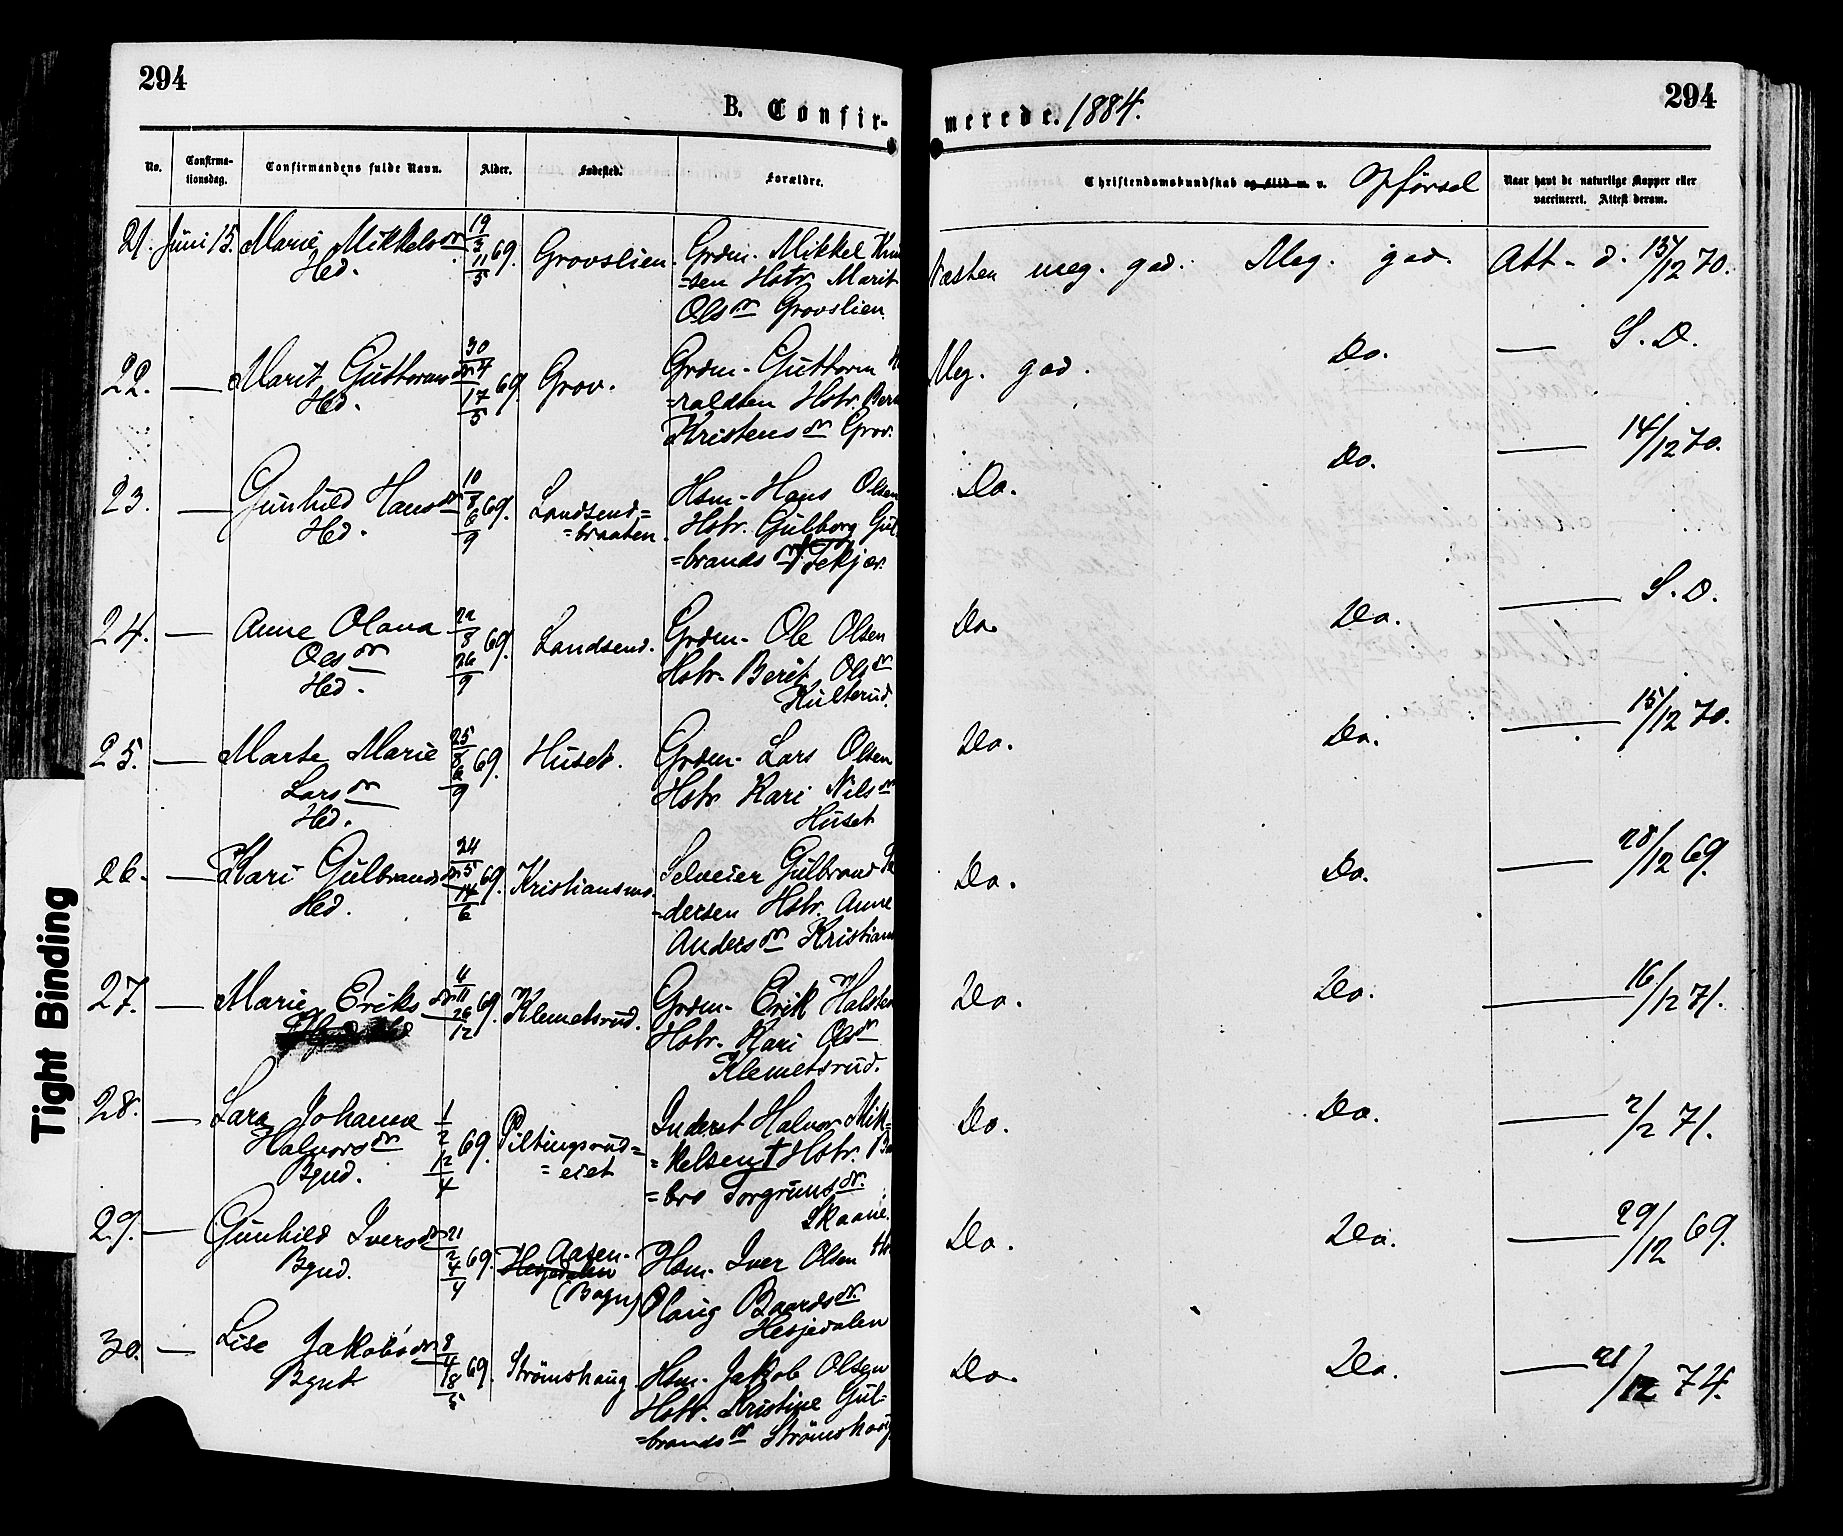 294
B. Confir-
No.
Confirma-
tionsdag.
Confirmandens fulde Navn.
Alder.
Fødested.
Forældre.
21. Juni 15. Marie Mikkelsdr 19/3 69. Grovslien. Grdm. Mikkel
Hed. 11/5 -sen Hstr Marit
Olsdr Grovslien.
22. — Marit Guttormsdr 30/4 69 Grov. Grdm. Guttorm
Hed. 17/5 =raldsen Hstr. Ber
Kristensdr Grov.
23. — Gunhild Hansdr 10/8 69. Landsend= Hsm. Hans Olsen
Hed. 6/9 =braaten. Hstr. Gulborg Gul
=brandsdr Tekjær
24. — Anne Olana 22/8 69. Landsend. Grdm. Ole Olsen
Olsdr 26/9 Hstr. Berit Olsdr
Hed. Kulterud.
25. — Marte Marie 25/8 69. Huset. Grdm. Lars Olsen
Larsdr /9 Hstr Kari Nilsdr
Hed. Huset
26. — Kari Gulbrandsdr 24/5 69. Kristiansms. Selveier Gulbrand
Hed. 14/6 =dersen Hstr. Anne
Andersdr Kristians
27. — Marie Eriksdr /11 69. Klemetsrud. Grdm. Erik Halsten
26/12 Hstr. Kari Olsdr
Klemetsrud.
28. — Sara Johanne 1/2 69. Piltingsrud= Inderst Halvor Mik=
Halvorsdr 12/4 =eiet =kelsen † Hstr.
Bgnd. =bro Torgrimsdr
Skaane.
29. — Gunhild Iversdr 21/2 69. Aasen. Hsm. Iver Olsen
Bgnd. 4/4 Hesjedalen
(Bagn) Olaug Baardsdr
Hesjedalen
30. — Lise Jakobsdr 8/4 69. Strømshaug Hsm. Jakob Olsen
Bgnd 18/5 Hstr. Kristine Gul=
=brandsdr Strømshaug
Tight Binding
294
merede. 1884.
Christendomskundskab og Flid m. v. Opførsel
Naar havt de naturlige Kopper eller
vaccineret. Attest derom.
Næsten meg. god. Meg. god. Att. d. 15/12 70.
Meg. god. Do. — S. D.
Do. Do. — 14/12 70.
Do. Do. — S. D.
Do. Do. — 15/12 70.
Do. Do. — 28/12 69.
Do. Do. — 16/12 71.
Do. Do. — 2/2 71.
Do. Do. — 29/12 69.
Do. Do. — 21/12 74.